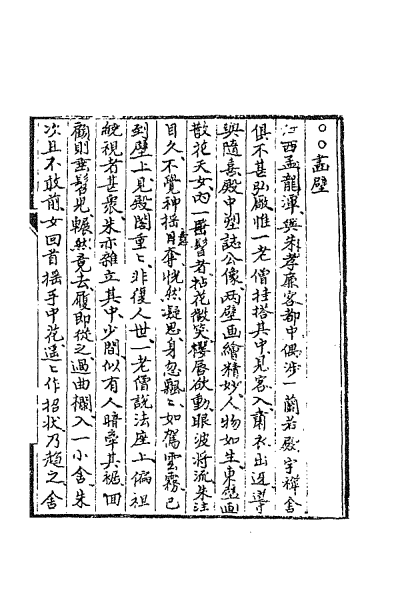 ○○畫壁
江西孟龍潭與朱孝廉客都中偶涉一蘭若殿宇禪舍
俱不甚弘敞惟一老僧挂搭其中見客入肅衣出迓導
與隨喜殿中塑誌公像兩壁画繪精妙人物如生東壁画
散花天女內一垂髫者拈花微笑櫻唇欲動眼波將流朱注
目久不覺神搖意奪恍然凝思身忽飄〻如駕雲霧已
到壁上見殿閣重〻非復人世一老僧說法座上偏袒
繞視者甚衆朱亦雜立其中少間似有人暗牽其裾回
顧則垂髫兒囅然竟去履即從之過曲欄入一小舍朱
次且不敢前女回首搖手中花遥〻作招狀乃趨之舍